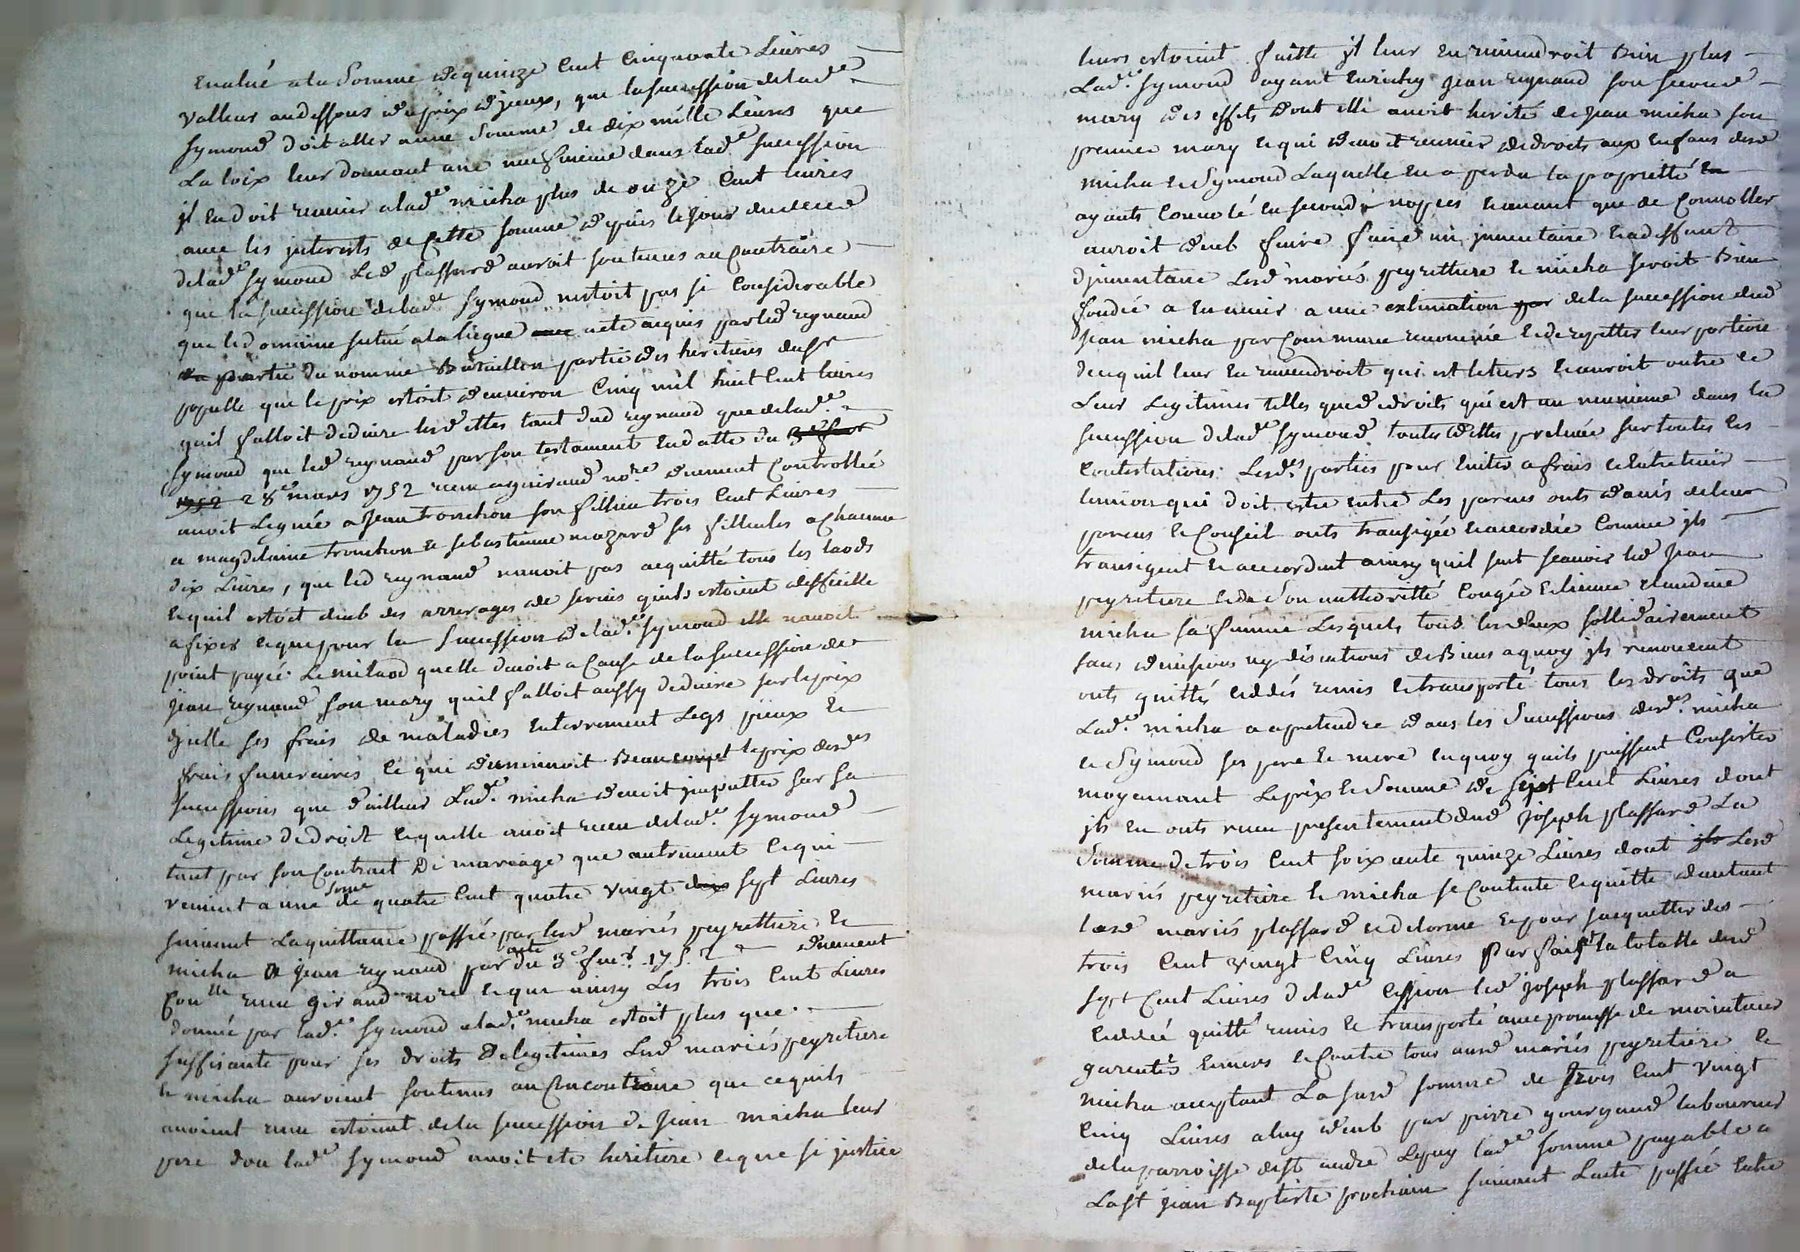 Evalué a la Somme de quinze Cent Cinquante Livres
valleur audessous du prix d'jceux, que la succession de lade
Symond doit aller a une Somme de dix mille Livres que
La loix leur donnant une neufvieme dans lade succession
jl en doit revenir a lade micha plus de onze Cent Livres
avec les jnterests de Cette somme depuis le jour du deced
de lade Symond Led plassard auroit soutenus au Contraire
que la succession de lade Symond nestoit pas si Considerable
que le domaine scitué a la liegue acte acquis par led reynaud
du nomme Bataillon partie des heritiers du sr
populle que le prix estoit d'environ Cinq mil huit Cent Livres
quil falloit deduire les dettes tant dud reynaud que de lade
Symond que led reynaud par son testament en datte du
28e mars 1752 receu aguiraud nore duement Controllée
avoit Legués a Jean tronchon son fillieu trois Cent Livres
a magdelaine tronchon et sebastienne mazard ses filleules a Chacune
dix Livres, que led reynaud navoit pas acquitté tous les laods
et quil estoit deub des arrerages de servis quils estoient difficille
a fixer et que pour la succession de lade Symond elle navoit
point payée Le milaod quelle devoit a Cause de la succession de
jean reynaud son mary quil falloit aussy deduire sur le prix
djcelle ses frais de maladies Enterrement Legs pieux et
frais funeraires ce qui diminuoit Beaucoupt le prix desdes
successions que d'ailleur Lade micha devoit jmputter sur sa
Legitime de droit ce quelle avoit receu de lade Symond
tant par son Contrat De mariage que autrement ce qui
revient a une Somme de quatre Cent quatre vingt sept Livres
suivant La quittance passée par lesd mariés peyrettiere et
micha a jean reynaud par acte du 3e fuer 175 duement
Conlle receu giraud nore et que ainsy Les trois Cent Livres
donnée par lade Symond a lade micha estoit plus que
suffisante pour ses droits de legitimes Lesd mariés peyretiere
et micha auroient soutenus au Concontraire que ce quils
avoient receu estoient de la succession de Jean micha leur
pere dou lade Symond avoit ete heritiere et que si justice
leurs estoient faitte jl leur en reviendroit Bien plus
Lade Symond ayant Enrichy Jean reynaud son second
mary des effets dont elle avoit herité de Jean micha son
premier mary et qui devoit revenir de droits aux enfans desd
micha et Symond Laquelle en a perdu la proprietté
ayants Convolé en seconde nopces et avant que de Convoller
auroit deub faire faire un jnventaire et a deffaut
djnventaire Lesd mariés peyrettiere et micha seroit Bien
fondée a en venir a une estimation de la succession dud
Jean micha par Commune renommé et de repetter leur portion
de ce quil leur en reviendroit qui est le tiers et auroit outre ce
Leur Legitimes telles que de droits qui est un neuvieme dans la
succession de lade Symond toutes dettes prelevée sur toutes les
Contestations Lesdes parties pour Eviter a frais et Entretenir
lunion qui doit estre entre Les parens onts d'avis de leur
parens et Conseil onts transigée et accordée Comme jls
transigent et accordent ainsy quil suit scavoir led Jean
peyretiere et de Son authoritté Congée et licence Claudine
micha sa femme Lesquels tous les deux sollidairement
sans division ny discutions de Biens a quoy jls renoncent
onts quittés ceddés remis et transporté tous les droits que
Lade micha a a pretendre dans les Successions desdes micha
et Symond ses pere et mere en quoy quils puissent Consister
moyennant Le prix et Somme de sept Cent Livres dont
jls en onts receu presentement dud Joseph plassard La
Somme de trois Cent soixante quinze Livres dont Lesd
mariés peyretiere et micha se Contente et quitte d'autant
lesd mariés plassard et delorme et pour jacquetter des
trois Cent vingt Cinq Livres Par fais la totalle dud
sept Cent Livres de lade Cession led Joseph plassard a
ceddée quitté remis et transporté avec promesse de maintenir
garentir Envers et Contre tous ausd mariés peyretiere et
micha acceptant La susd somme de trois Cent vingt
Cinq Livres a luy deub par pierre gourgaud laboureur
de la parroisse de st andré Lepuy lade somme payable a
La st Jean Baptiste prochain suivant Lacte passée Entre